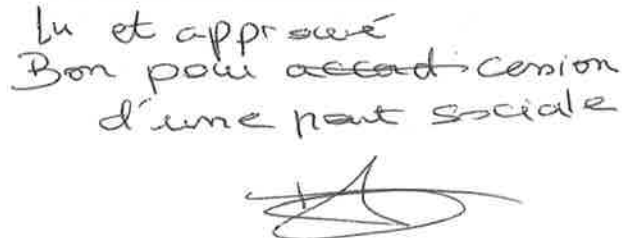 Lu et approuvé
Bon pour accord cession
d'une part sociale